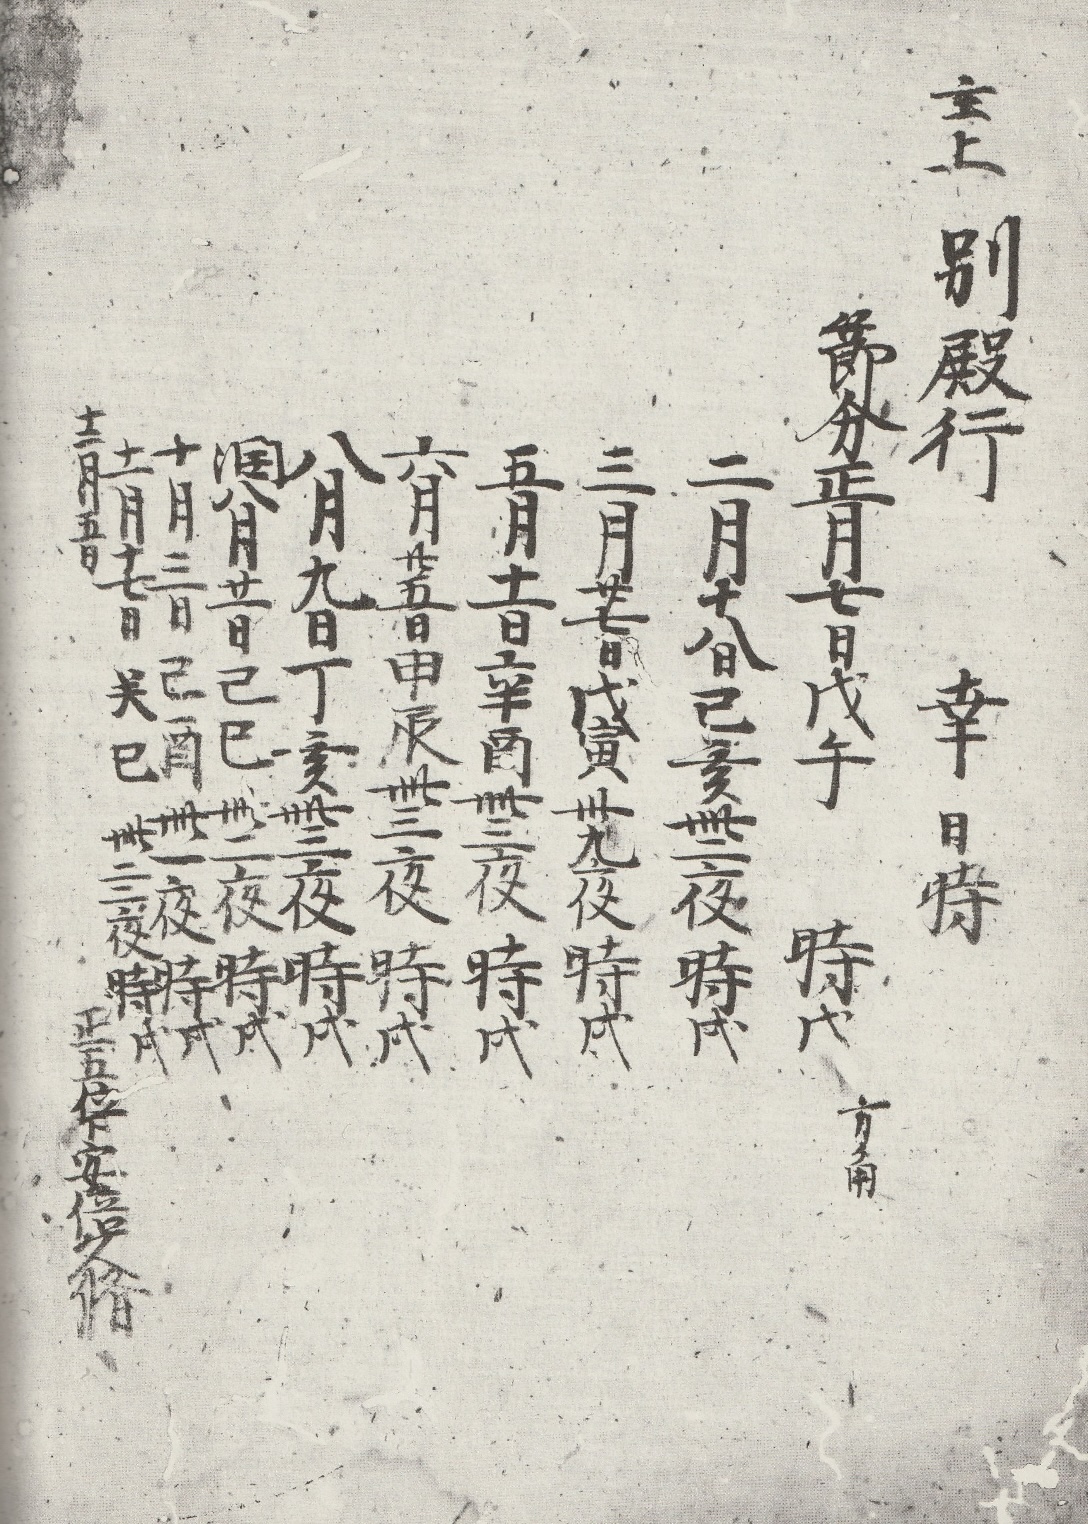 言上 別殿行幸日時
節分正月七日戊午 時戌 方角
二月十八日己亥卌二夜 時戌
三月廿七日戊寅卅九夜 時戌
五月十一日辛酉卌三夜 時戌
六月廿五日甲辰卌三夜 時戌
八月九日丁亥卌三夜 時戌
閏八月廿一日己巳卌二夜 時戌
十月三日己酉卌一夜 時戌
十一月十七日癸巳卌三夜時戌
十二月五日 正五位下安倍久脩